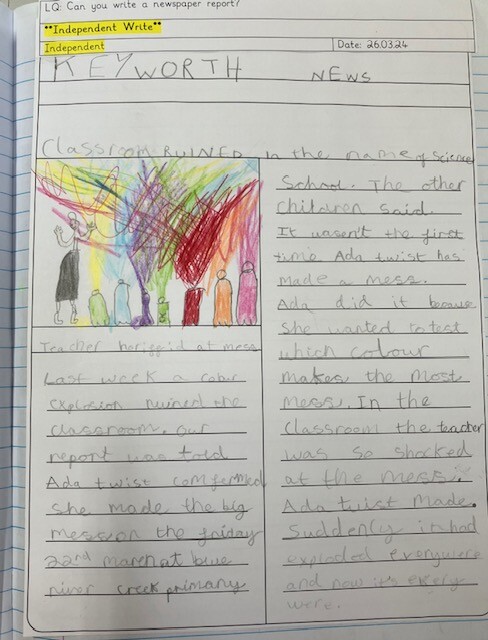 LQ: Can you write a newspaper report?
**Independent Write**
Independent
Date: 26.03.24
KEYWORTH NEWS
Classroom RUINED in the name of science
Teacher horiggid at mess
Last week a colur
explosion ruined the
classroom. our
report was told
Ada twist comfermed
she made the big
mess on the friday
22nd march at blue
river creek primary
School. The other
children said.
It wasen't the first
time Ada twist has
made a mess.
Ada did it because
she wanted to test
which colour
makes the most
mess. In the
classroom the teacher
was so shocked
at the mess.
Ada twist made.
Suddenly it had
exploded everywere
and now it's every
were.